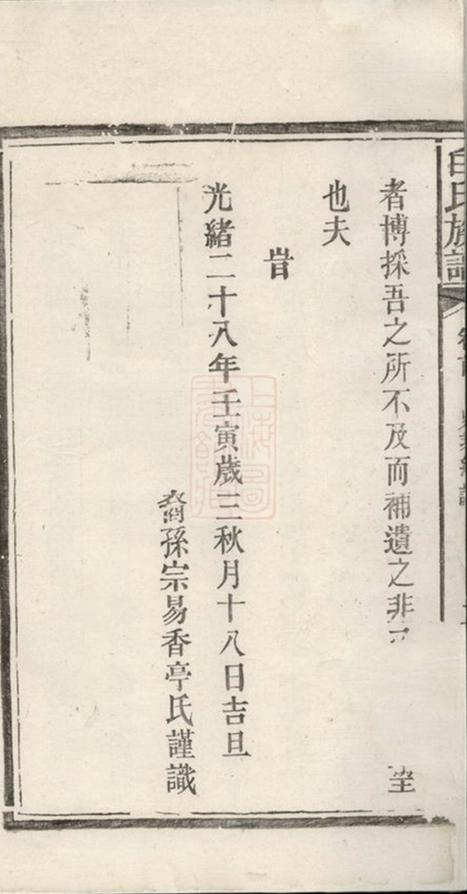 白氏族譜
者博採吾之所不及而補遺之非
也夫
旹
光緒二十八年壬寅歲三秋月十八日吉旦
裔孫宗易香亭氏謹識
上海圖書館藏